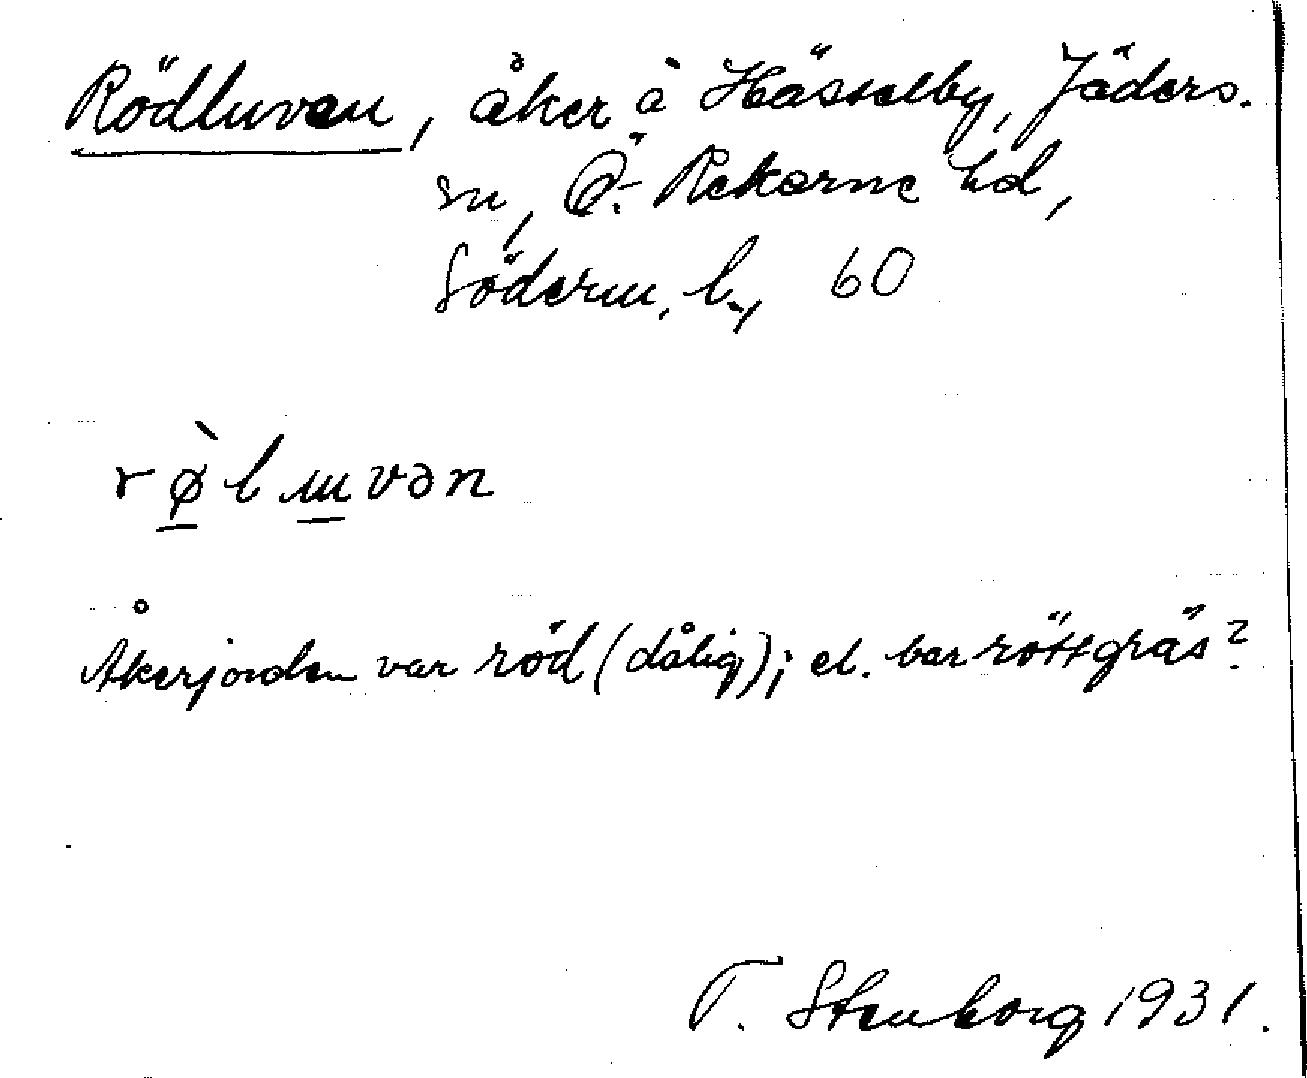 Rödluvan, åker å Hässelby, Jäders.
sn, Ö. Rekarne hd,
Söderm. l., 60
rø̠̀lu̠vən
Åkerjorden var röd (dålig); el. bar röttgräs?
T. Stenborg 1931.